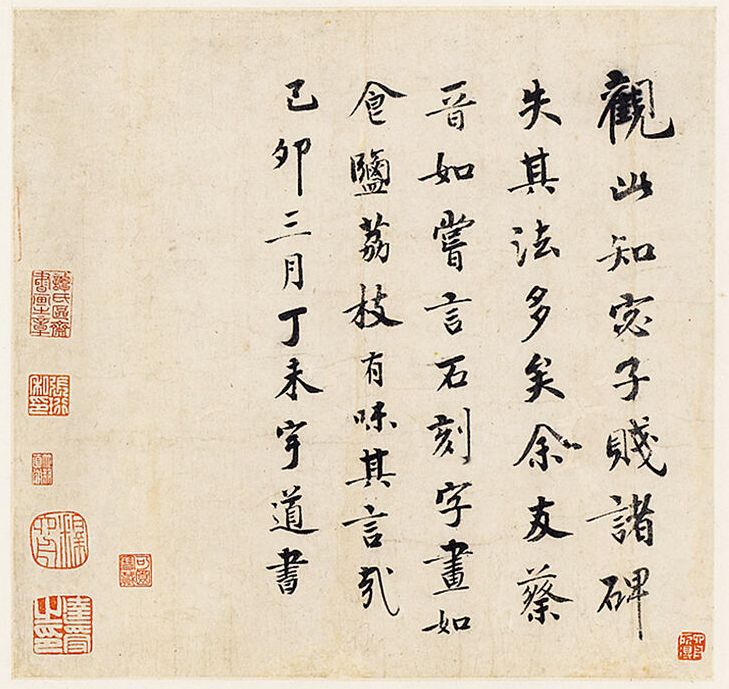 觀此知宓子賤諸碑
失其法多矣余友蔡
晉如嘗言石刻字畫如
食鹽荔枝有味其言哉
己卯三月丁未宇道書